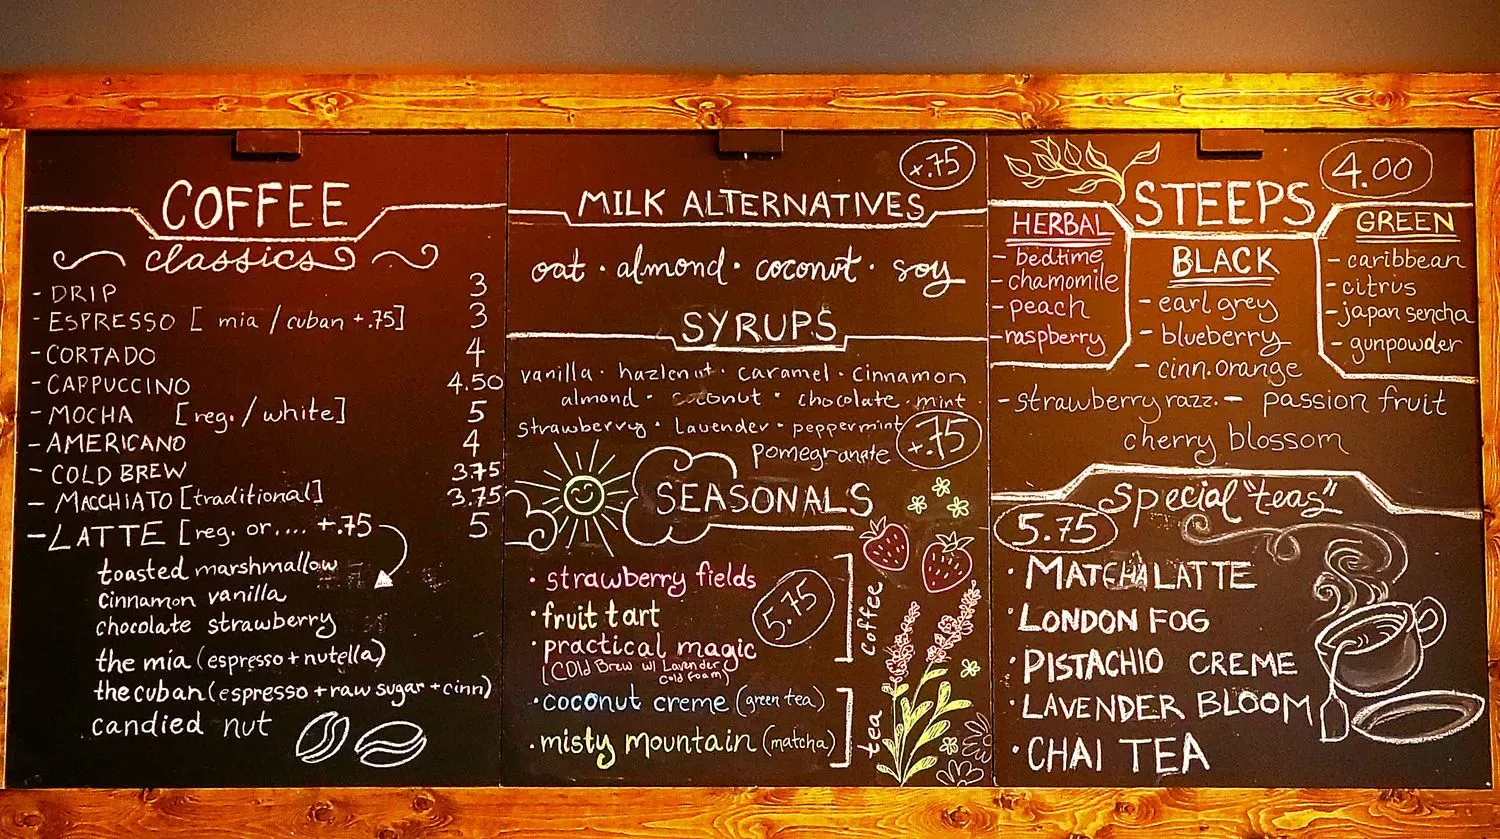 COFFEE
classics
- DRIP 3
- ESPRESSO [ mia / cuban +.75] 3
- CORTADO 4
- CAPPUCCINO 4.50
- MOCHA [reg. / white] 5
- AMERICANO 4
- COLD BREW 3.75
- MACCHIATO [traditional] 3.75
- LATTE [reg. or.... +.75 5
toasted marshmallow
cinnamon vanilla
chocolate strawberry
the mia (espresso + nutella)
the cuban (espresso + raw sugar + cinn)
candied nut
+.75
MILK ALTERNATIVES
oat · almond · coconut · soy
SYRUPS
vanilla · hazlenut · caramel · cinnamon
almond · coconut · chocolate · mint
strawberry · lavender · peppermint
pomegranate
+.75
SEASONALS
· strawberry fields
· fruit tart
· practical magic
(COLD Brew w/ Lavender
Cold Foam)
5.75
coffee
· coconut creme (green tea)
· misty mountain (matcha)
tea
STEEPS
4.00
HERBAL
- bedtime
- chamomile
- peach
- raspberry
BLACK
- earl grey
- blueberry
- cinn. orange
GREEN
- caribbean
- citrus
- japan sencha
- gunpowder
- strawberry razz. - passion fruit
cherry blossom
special "teas"
5.75
· MATCHA LATTE
· LONDON FOG
· PISTACHIO CREME
· LAVENDER BLOOM
· CHAI TEA